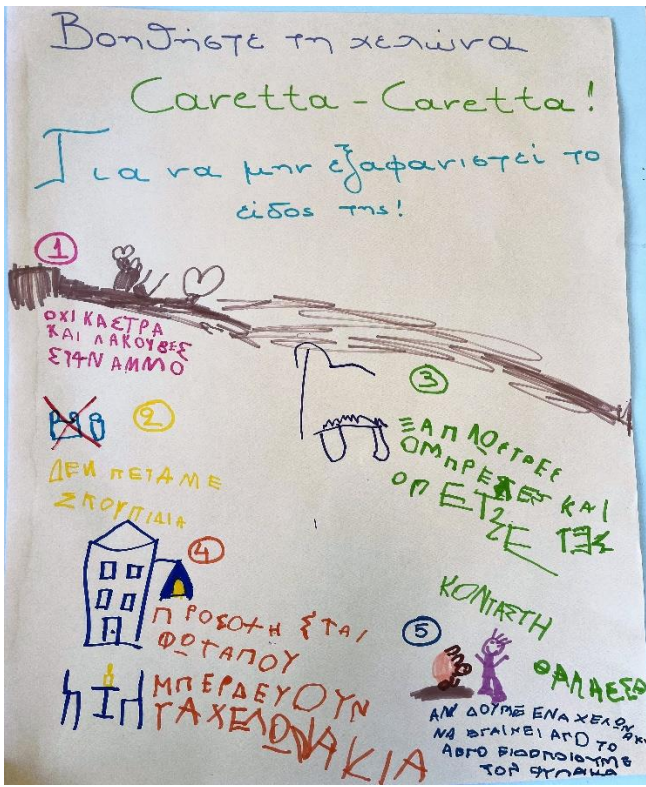 Βοηθήστε τη χελώνα
Caretta - Caretta!
Για να μην εξαφανιστεί το
είδος της!
1
ΟΧΙ ΚΑΣΤΡΑ
ΚΑΙ ΛΑΚΟΥΒΕΣ
ΣΤΗΝ ΑΜΜΟ
2
ΔΕΝ ΠΕΤΑΜΕ
ΣΚΟΥΠΙΔΙΑ
3
ΞΑΠΛΩΣΤΡΕΣ
ΟΜΠΡΕΛΕΣ ΚΑΙ
ΚΟΝΤΑ ΣΤΗ
ΘΑΛΑΣΣΑ
4
ΠΡΟΣΟΧΗ ΣΤΑ
ΦΩΤΑ ΠΟΥ
ΜΠΕΡΔΕΥΟΥΝ
ΤΑ ΧΕΛΩΝΑΚΙΑ
5
ΑΝ ΔΟΥΜΕ ΕΝΑ ΧΕΛΩΝΑΚΙ
ΝΑ ΒΓΑΙΝΕΙ ΑΠΟ ΤΟ
ΑΒΓΟ ΕΙΔΟΠΟΙΟΥΜΕ
ΤΟΝ ΦΥΛΑΚΑ